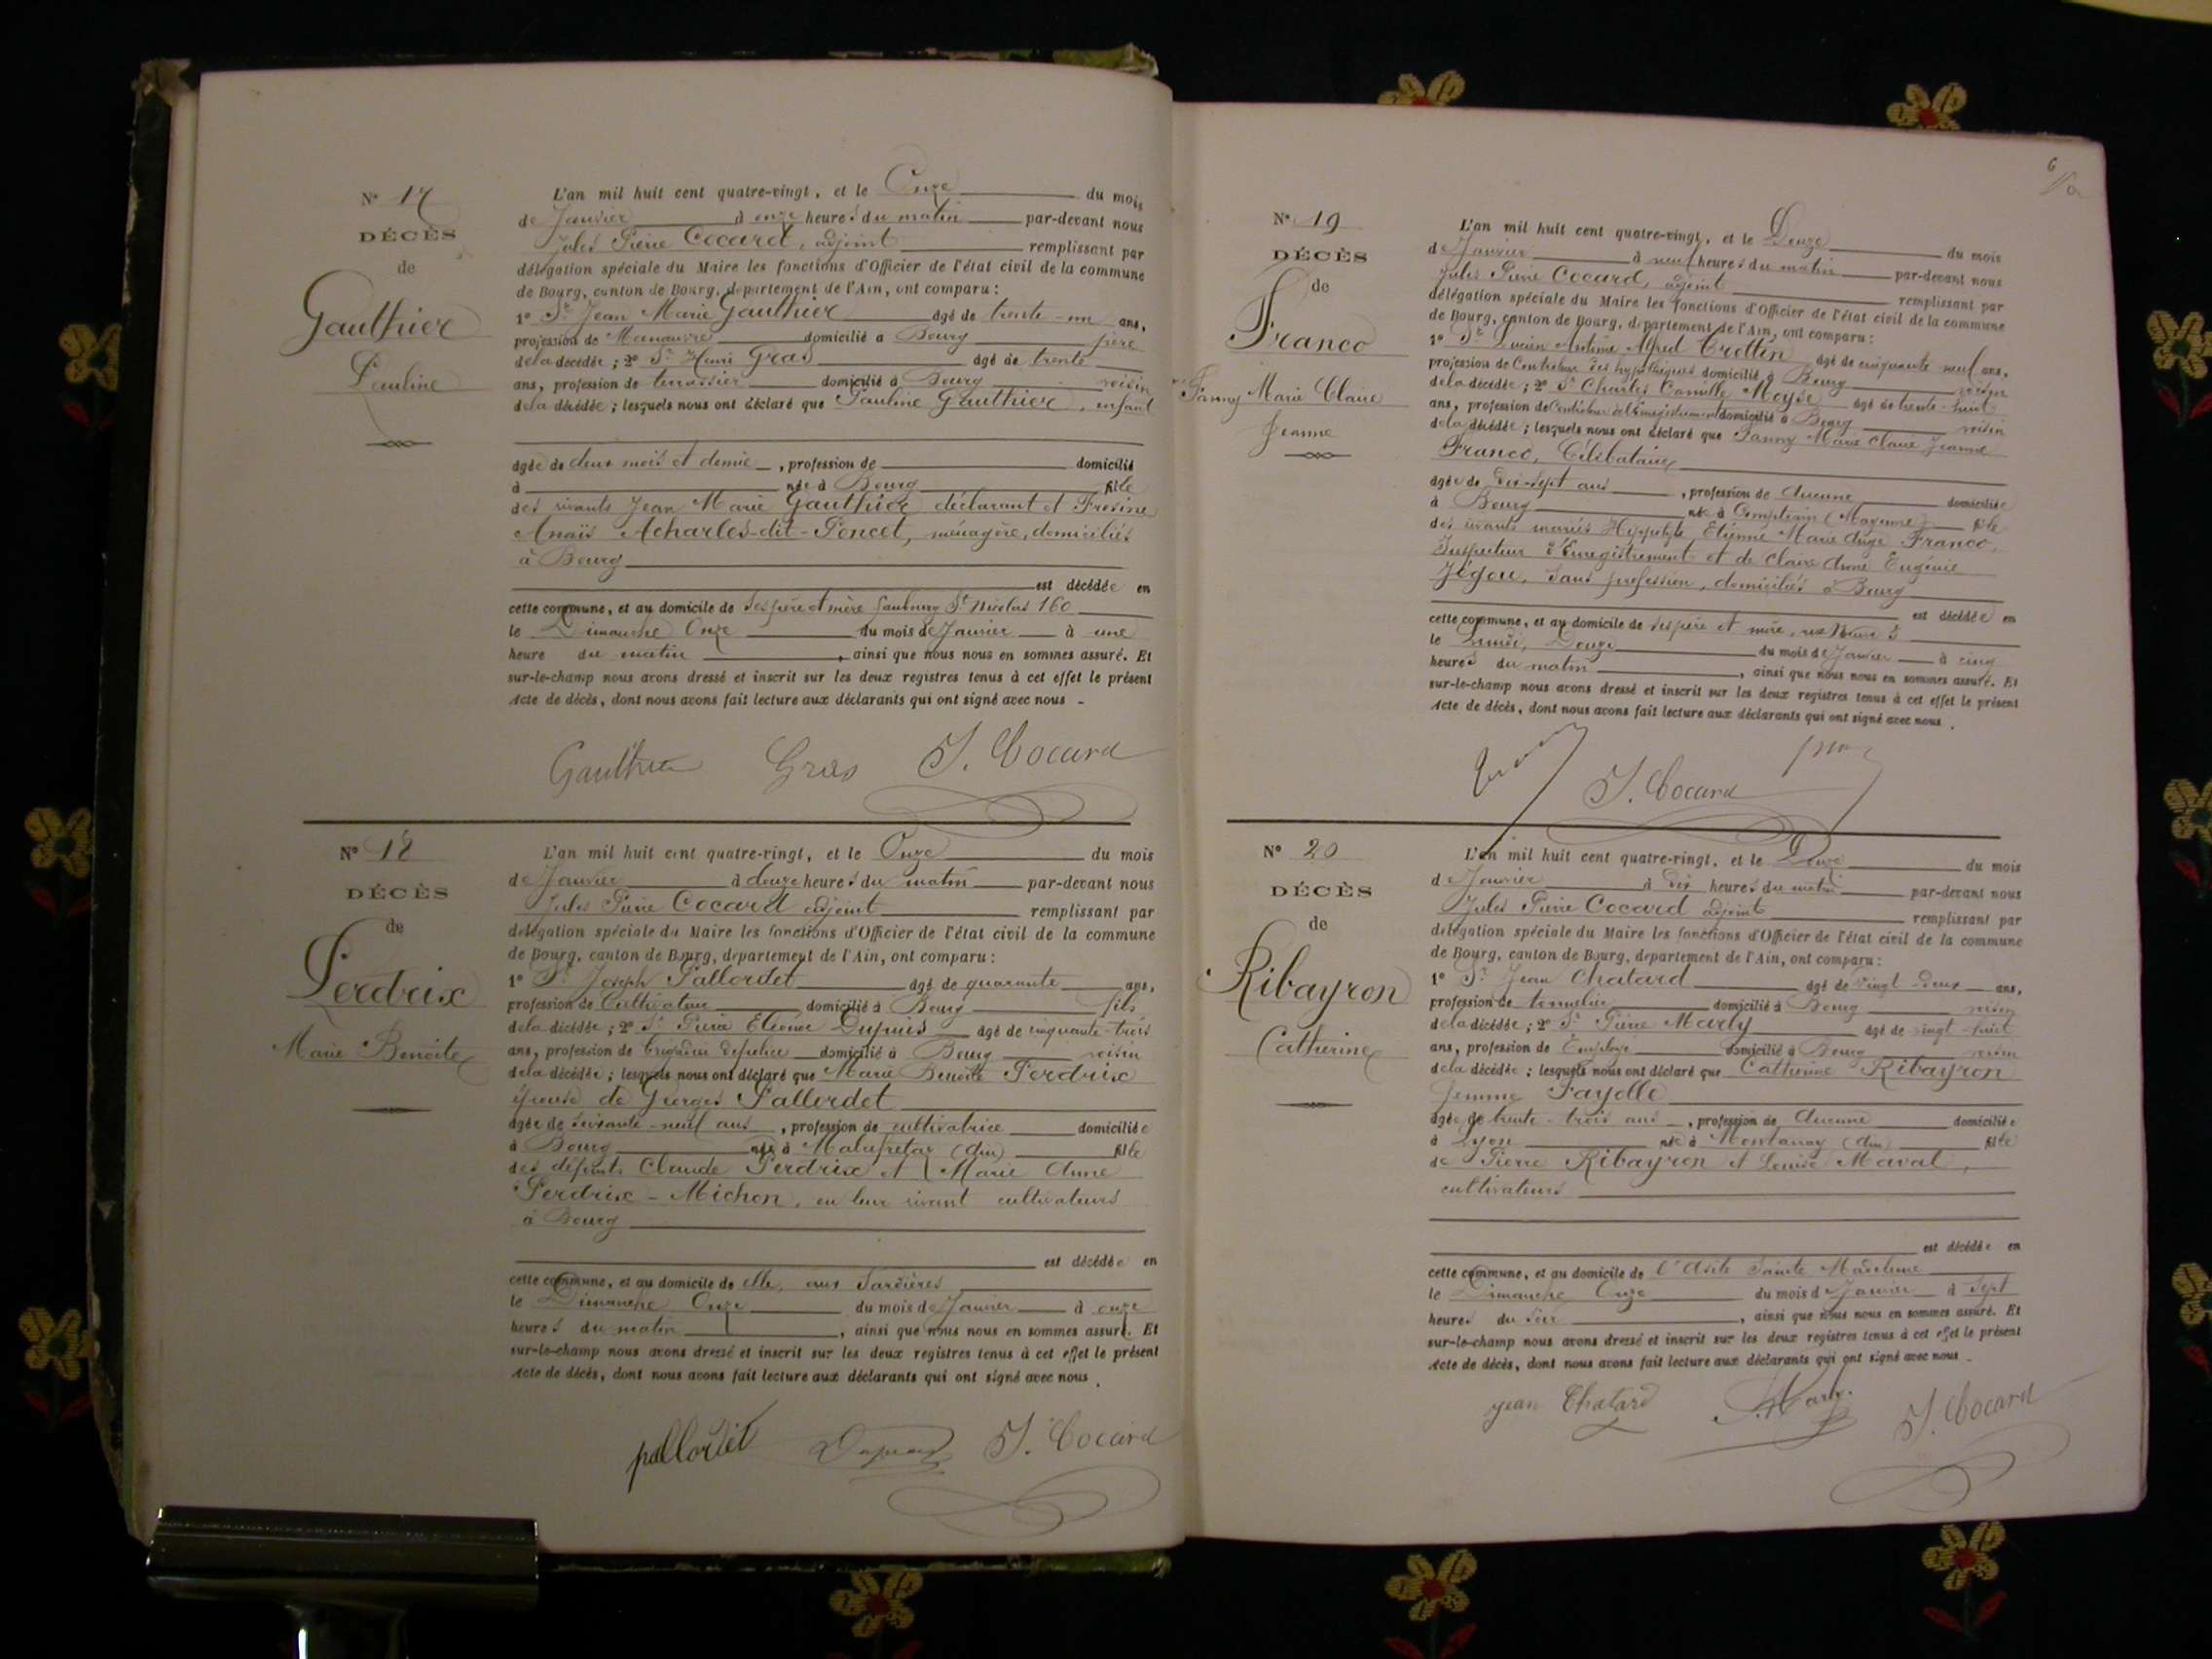 N° 17
DÉCÈS
de
Gauthier
Pauline
L'an mil huit cent quatre-vingt, et le Onze du mois
de Janvier à onze heures du matin par-devant nous
Jules Pierre Cocard, adjoint remplissant par
délégation spéciale du Maire les fonctions d'Officier de l'état civil de la commune
de Bourg, canton de Bourg, département de l'Ain, ont comparu :
1° Sr Jean Marie Gauthier âgé de trente-un ans,
profession de Manœuvre domicilié à Bourg père
de la décédée ; 2° Sr Henri Gras âgé de trente
ans, profession de terrassier domicilié à Bourg voisin
de la décédée ; lesquels nous ont déclaré que Pauline Gauthier, enfant
âgée de deux mois et demie, profession de domicilié
à née à Bourg fille
des vivants Jean Marie Gauthier déclarant et Frosine
Anaïs Acharles-dit-Poncet, ménagère, domiciliés
à Bourg
est décédée en
cette commune, et au domicile de ses père et mère faubourg St Nicolas 160
le Dimanche Onze du mois de Janvier à une
heure du matin, ainsi que nous nous en sommes assuré. Et
sur-le-champ nous avons dressé et inscrit sur les deux registres tenus à cet effet le présent
Acte de décès, dont nous avons fait lecture aux déclarants qui ont signé avec nous
Gauthier Gras J. Cocard
N° 18
DÉCÈS
de
Perdrix
Marie Benoite
L'an mil huit cent quatre-vingt, et le Onze du mois
de Janvier à douze heures du matin par-devant nous
Jules Pierre Cocard adjoint remplissant par
délégation spéciale du Maire les fonctions d'Officier de l'état civil de la commune
de Bourg, canton de Bourg, département de l'Ain, ont comparu :
1° Sr Joseph Pallordet âgé de quarante ans,
profession de Cultivateur domicilié à Bourg fils
de la décédée ; 2° Sr Pierre Etienne Dupuis âgé de cinquante-trois
ans, profession de brigadier de police domicilié à Bourg voisin
de la décédée ; lesquels nous ont déclaré que Marie Benoite Perdrix
épouse de Georges Pallordet
âgée de soixante-neuf ans, profession de cultivatrice domiciliée
à Bourg née à Malafretaz (Ain) fille
des défunts Claude Perdrix et Marie Anne
Perdrix-Michon, en leur vivant cultivateurs
à Bourg
est décédée en
cette commune, et au domicile de elle, aux Sardières
le Dimanche Onze du mois de Janvier à onze
heures du matin, ainsi que nous nous en sommes assuré. Et
sur-le-champ nous avons dressé et inscrit sur les deux registres tenus à cet effet le présent
Acte de décès, dont nous avons fait lecture aux déclarants qui ont signé avec nous.
pallordet Dupuis J. Cocard
6
N° 19
DÉCÈS
de
Franco
Fanny Marie Claire
Jeanne
L'an mil huit cent quatre-vingt, et le Douze du mois
de Janvier à neuf heures du matin par-devant nous
Jules Pierre Cocard, adjoint remplissant par
délégation spéciale du Maire les fonctions d'Officier de l'état civil de la commune
de Bourg, canton de Bourg, département de l'Ain, ont comparu :
1° Sr Lucien Alfred Trottin âgé de cinquante neuf ans,
profession de Contrôleur des hypothèques domicilié à Bourg voisin
de la décédée ; 2° Sr Charles Camille Moyse âgé de trente-huit
ans, profession de Contrôleur de l'Enregistrement domicilié à Bourg voisin
de la décédée ; lesquels nous ont déclaré que Fanny Marie Claire Jeanne
Franco, Célibataire
âgée de dix-sept ans, profession de Aucune domiciliée
à Bourg née à (Mayenne) fille
des vivants mariés Hippolyte Etienne Marie Ange Franco,
Inspecteur d'Enregistrement et de Claire Anne Eugénie
Jégou, sans profession, domiciliés à Bourg
est décédée en
cette commune, et au domicile de ses père et mère, rue Neuve 5
le Lundi, Douze du mois de Janvier à cinq
heures du matin, ainsi que nous nous en sommes assuré. Et
sur-le-champ nous avons dressé et inscrit sur les deux registres tenus à cet effet le présent
Acte de décès, dont nous avons fait lecture aux déclarants qui ont signé avec nous.
J. Cocard
N° 20
DÉCÈS
de
Ribayron
Catherine
L'an mil huit cent quatre-vingt, et le Douze du mois
de Janvier à dix heures du matin par-devant nous
Jules Pierre Cocard adjoint remplissant par
délégation spéciale du Maire les fonctions d'Officier de l'état civil de la commune
de Bourg, canton de Bourg, département de l'Ain, ont comparu :
1° Sr Jean Chatard âgé de vingt-deux ans,
profession de tonnelier domicilié à Bourg voisin
de la décédée ; 2° Sr Pierre Marly âgé de vingt-huit
ans, profession de Employé domicilié à Bourg voisin
de la décédée ; lesquels nous ont déclaré que Catherine Ribayron
femme Fayolle
âgée de trente-trois ans, profession de Aucune domiciliée
à Lyon née à Montanay (Ain) fille
de Pierre Ribayron et Louise Maval,
cultivateurs
est décédée en
cette commune, et au domicile de l'Asile Sainte Madeleine
le Dimanche Onze du mois de Janvier à Sept
heures du soir, ainsi que nous nous en sommes assuré. Et
sur-le-champ nous avons dressé et inscrit sur les deux registres tenus à cet effet le présent
Acte de décès, dont nous avons fait lecture aux déclarants qui ont signé avec nous.
jean Chatard Marly J. Cocard